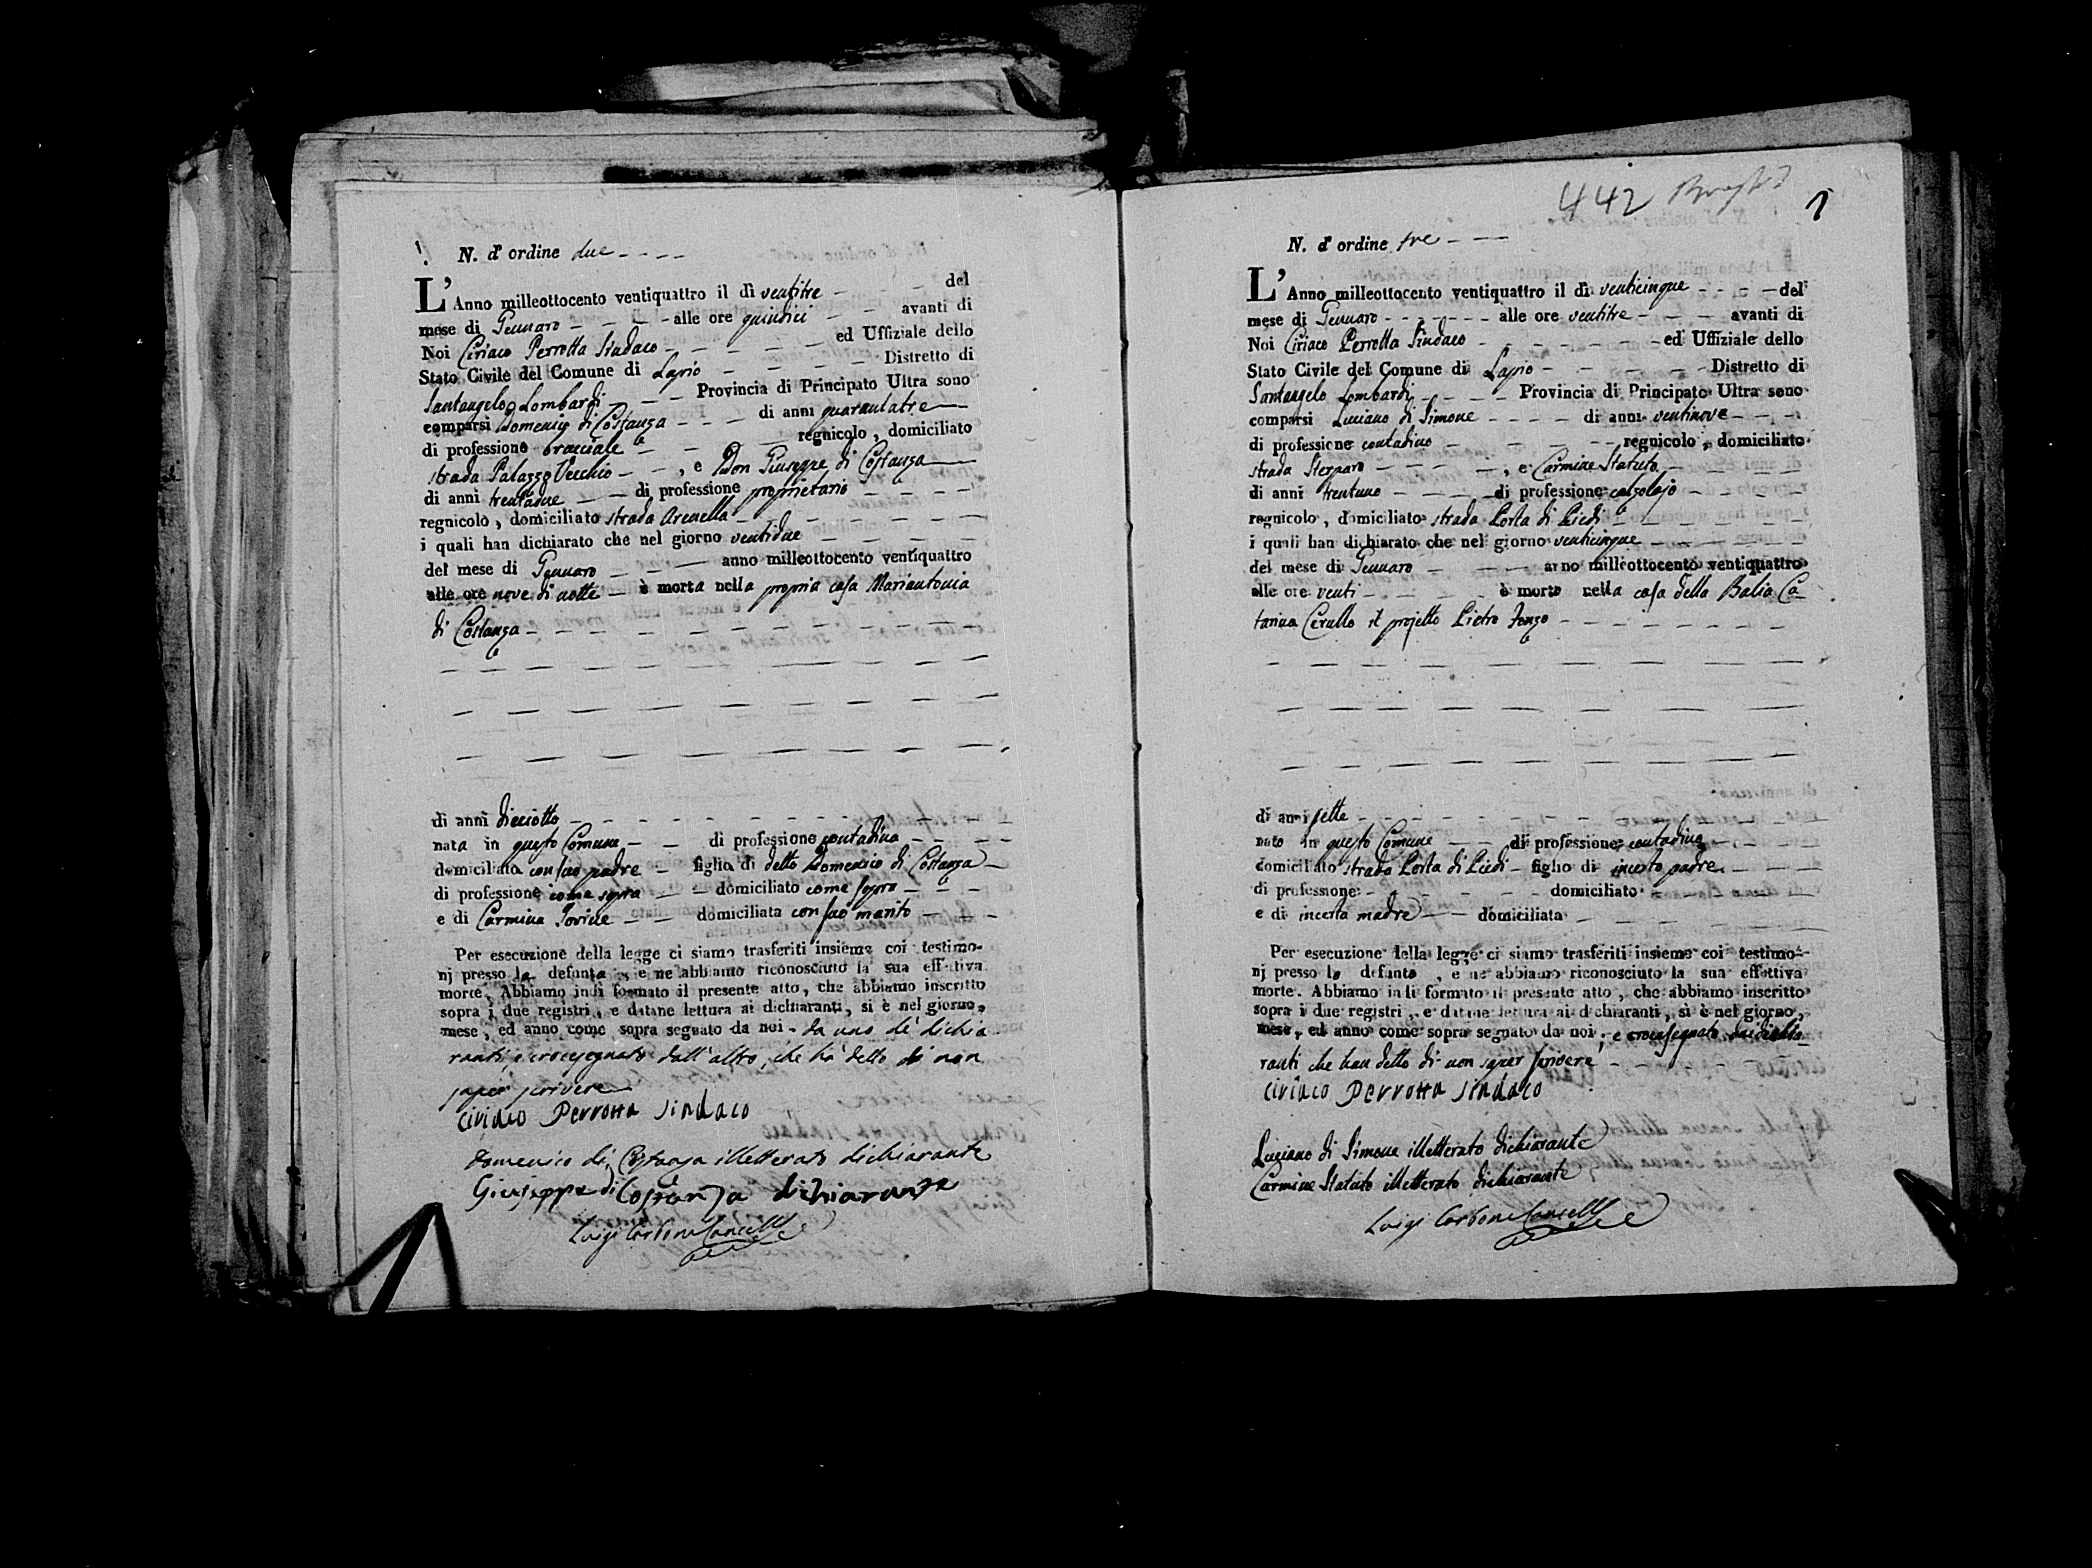 N. d' ordine due
L'Anno milleottocento ventiquattro il dì ventitre del
mese di Gennaro alle ore quindici avanti di
Noi Ciriaco Perrotta Sindaco ed Uffiziale dello
Stato Civile del Comune di Lapio Distretto di
Santangelo Lombardi Provincia di Principato Ultra sono
comparsi Domenico di Costanza di anni quarantatre
di professione bracciale regnicolo, domiciliato
strada Palazzo Vecchio, e Don Giuseppe di Costanza
di anni trentadue di professione proprietario
regnicolo, domiciliato strada Arenella
i quali han dichiarato che nel giorno ventidue
del mese di Gennaro anno milleottocento ventiquattro
alle ore nove di notte è morta nella propria casa Mariantonia
di Costanza
di anni dieciotto
nata in questo Comune di professione contadina
domiciliata con suo padre figlia di detto Domenico di Costanza
di professione come sopra domiciliato come sopra
e di Carmina domiciliata con suo marito
Per esecuzione della legge ci siamo trasferiti insieme coi testimo-
nj presso la defunta, e ne abbiamo riconosciuto la sua effettiva
morte. Abbiamo indi formato il presente atto, che abbiamo inscritto
sopra i due registri, e datane lettura ai dichiaranti, si è nel giorno,
mese, ed anno come sopra segnato da noi, da uno de' dichia
ranti, e crocesegnato dall'altro, che ha detto di non
saper scrivere
Ciriaco Perrotta Sindaco
Domenico di Costanza illetterato dichiarante
Giuseppe di Costanza dichiarante
Luigi Carbone Cancell.e
442
1
N. d' ordine tre
L'Anno milleottocento ventiquattro il dì venticinque del
mese di Gennaro alle ore ventitre avanti di
Noi Ciriaco Perrotta Sindaco ed Uffiziale dello
Stato Civile del Comune di Lapio Distretto di
Santangelo Lombardi Provincia di Principato Ultra sono
comparsi Luciano di Simone di anni ventinove
di professione contadino regnicolo, domiciliato
strada Sterparo, e Carmine Statuto
di anni trentuno di professione calzolajo
regnicolo, domiciliato strada Porta di Piedi
i quali han dichiarato che nel giorno venticinque
del mese di Gennaro anno milleottocento ventiquattro
alle ore venti è morto nella casa della Balia Ca
tarina Cerullo il projetto Pietro Fonzo
di anni sette
nato in questo Comune di professione contadino
domiciliato strada Porta di Piedi figlio di incerto padre
di professione domiciliato
e di incerta madre domiciliata
Per esecuzione della legge ci siamo trasferiti insieme coi testimo-
nj presso lo defunto, e ne abbiamo riconosciuto la sua effettiva
morte. Abbiamo indi formato il presente atto, che abbiamo inscritto
sopra i due registri, e datane lettura ai dichiaranti, si è nel giorno,
mese, ed anno come sopra segnato da noi, e crocesegnato dai dichia
ranti che han detto di non saper scrivere
Ciriaco Perrotta Sindaco
Luciano di Simone illetterato dichiarante
Carmine Statuto illetterato dichiarante
Luigi Carbone Cancell.e